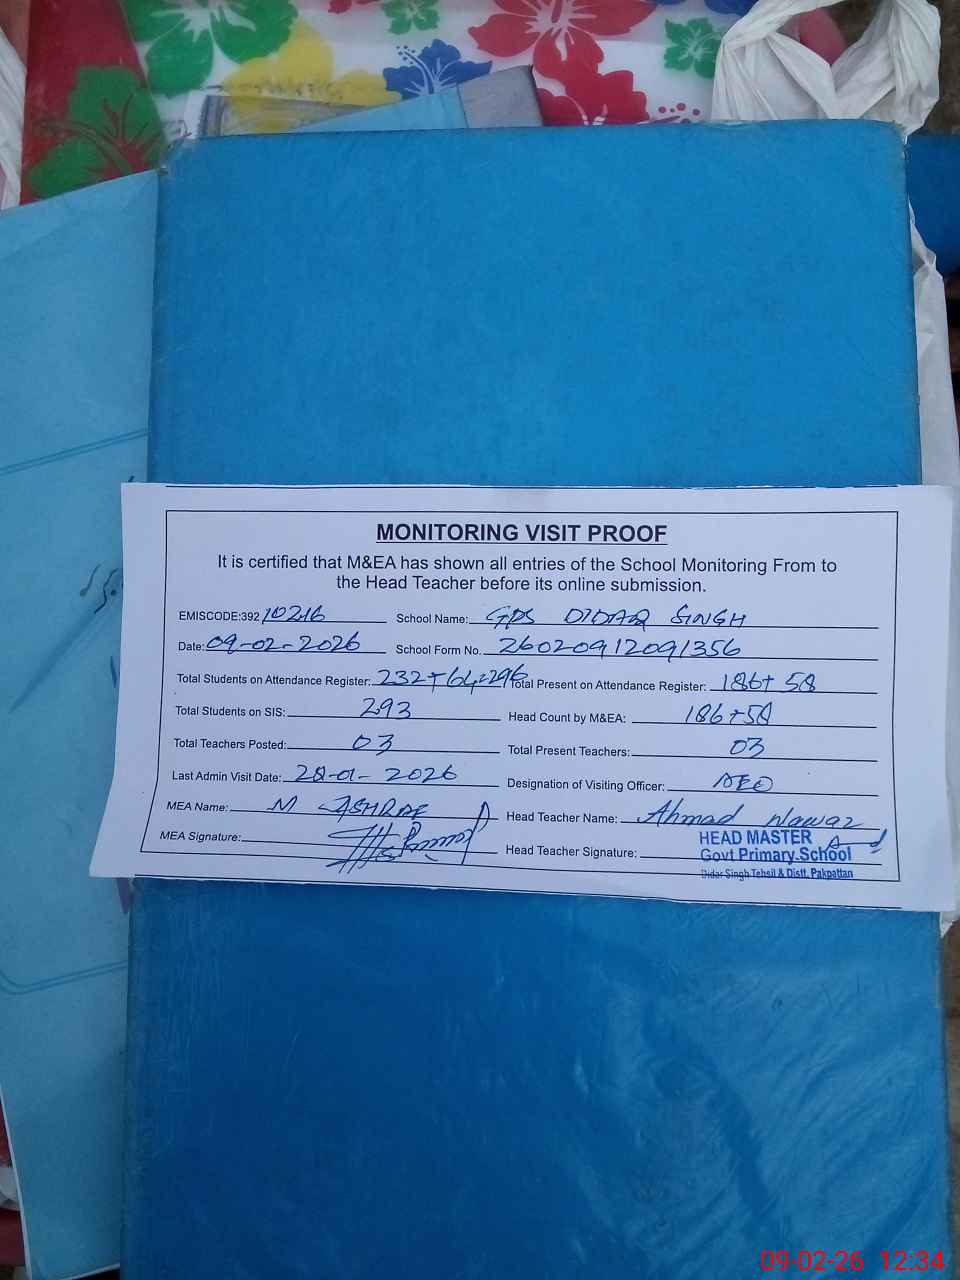 MONITORING VISIT PROOF
It is certified that M&EA has shown all entries of the School Monitoring From to
the Head Teacher before its online submission.
EMISCODE:392 10216 School Name: GPS DIDAR SINGH
Date: 09-02-2026 School Form No. 26020912091356
Total Students on Attendance Register: 232+64=296 Total Present on Attendance Register: 186+58
Total Students on SIS: 293 Head Count by M&EA: 186+58
Total Teachers Posted: 03 Total Present Teachers: 03
Last Admin Visit Date: 28-01-2026 Designation of Visiting Officer: AEO
MEA Name: M ASHRAF Head Teacher Name: Ahmad Nawaz
MEA Signature: Head Teacher Signature:
HEAD MASTER
Govt Primary School
Didar Singh Tehsil & Distt. Pakpattan
09-02-26 12:34